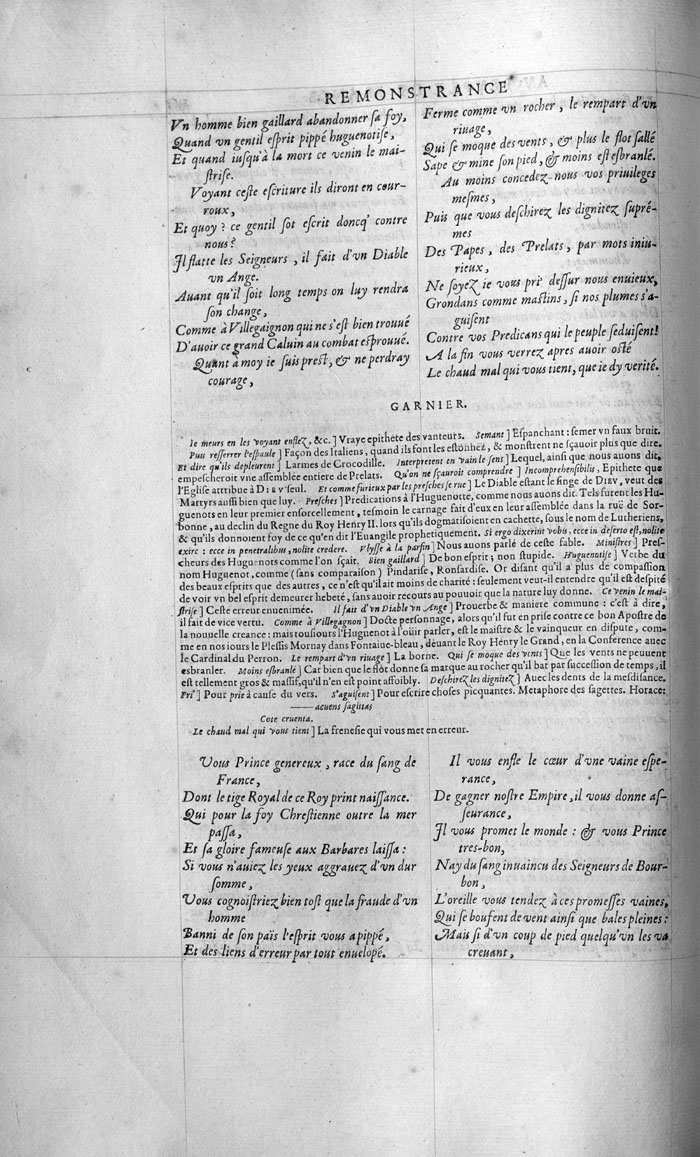 REMONSTRANCE
Vn homme bien gaillard abandonner sa foy,
Quand vn gentil esprit pippé huguenotise,
Et quand iusqu'à la mort ce venin le mai-
strise.
Voyant ceste escriture ils diront en cour-
roux,
Et quoy? ce gentil sot escrit doncq' contre
nous?
Il flatte les Seigneurs, il fait d'vn Diable
vn Ange.
Auant qu'il soit long temps on luy rendra
son change,
Comme à Villegaignon qui ne s'est bien trouué
D'auoir ce grand Caluin au combat esprouué.
Quant à moy ie suis prest, & ne perdray
courage,
Ferme comme vn rocher, le rempart d'vn
riuage,
Qui se moque des vents, & plus le flot sallé
Sape & mine son pied, & moins est esbranlé.
Au moins concedez nous vos priuileges
mesmes,
Puis que vous deschirez les dignitez supré-
mes
Des Papes, des Prelats, par mots iniu-
rieux,
Ne soyez ie vous pri' dessur nous enuieux,
Grondans comme mastins, si nos plumes s'a-
guisent
Contre vos Predicans qui le peuple seduisent!
A la fin vous verrez apres auoir osté
Le chaud mal qui vous tient, que ie dy verité.
GARNIER.
Ie meurs en les voyant enflez, &c.] Vraye epithete des vanteurs. Semant] Espanchant: semer vn faux bruit.
Puis resserrer l'espaule] Façon des Italiens, quand ils font les estonnez, & monstrent ne sçauoir plus que dire.
Et dire qu'ils depleurent] Larmes de Crocodille. Interpretent en vain le sens] Lequel, ainsi que nous auons dit,
empescheroit vne assemblée entiere de Prelats. Qu'on ne sçauroit comprendre] Incomprehensibilis, Epithete que
l'Eglise attribue à DIEV seul. Et comme furieux par les presches se rue] Le Diable estant le singe de DIEV, veut des
Martyrs aussi bien que luy. Presches] Predications à l'Huguenotte, comme nous auons dit. Tels furent les Hu-
guenots en leur premier ensorcellement, tesmoin le carnage fait d'eux en leur assemblée dans la ruë de Sor-
bonne, au declin du Regne du Roy Henry II. lors qu'ils dogmatisoient en cachette, sous le nom de Lutheriens,
& qu'ils donnoient foy de ce qu'en dit l'Euangile prophetiquement. Si ergo dixerint vobis, ecce in deserto est, nolite
exire: ecce in penetralibus, nolite credere. Vlysse à la parfin] Nous auons parlé de ceste fable. Ministrer] Pres-
cheurs des Huguenots comme l'on sçait. Bien gaillard] De bon esprit; non stupide. Huguenotise] Verbe du
nom Huguenot, comme (sans comparaison) Pindarise, Ronsardise. Or disant qu'il a plus de compassion
des beaux esprits que des autres, ce n'est qu'il ait moins de charité: seulement veut-il entendre qu'il est despité
de voir vn bel esprit demeurer hebeté, sans auoir recours au pouuoir que la nature luy donne. Ce venin le mai-
strise] Ceste erreur enuenimée. Il fait d'vn Diable vn Ange] Prouerbe & maniere commune: c'est à dire,
il fait de vice vertu. Comme à Villegagnon] Docte personnage, alors qu'il fut en prise contre ce bon Apostre de
la nouuelle creance: mais tousiours l'Huguenot à l'ouïr parler, est le maistre & le vainqueur en dispute, com-
me en nos iours le Plessis Mornay dans Fontaine-bleau, deuant le Roy Henry le Grand, en la Conference auec
le Cardinal du Perron. Le rempart d'vn riuage] La borne. Qui se moque des vents] Que les vents ne peuuent
esbranler. Moins esbranlé] Car bien que le flot donne sa marque au rocher qu'il bat par succession de temps, il
est tellement gros & massif, qu'il n'en est point affoibly. Deschirez les dignitez] Auec les dents de la mesdisance.
Pri'] Pour prie à cause du vers. S'aguisent] Pour escrire choses picquantes. Metaphore des sagettes. Horace:
——acuens sagittas
Cote cruenta.
Le chaud mal qui vous tient] La frenesie qui vous met en erreur.
Vous Prince genereux, race du sang de
France,
Dont le tige Royal de ce Roy print naissance.
Qui pour la foy Chrestienne outre la mer
passa,
Et sa gloire fameuse aux Barbares laissa:
Si vous n'auiez les yeux aggrauez d'vn dur
somme,
Vous cognoistriez bien tost que la fraude d'vn
homme
Banni de son païs l'esprit vous a pippé,
Et des liens d'erreur par tout enuelopé.
Il vous enfle le cœur d'vne vaine espe-
rance,
De gagner nostre Empire, il vous donne as-
seurance,
Il vous promet le monde: & vous Prince
tres-bon,
Nay du sang inuaincu des Seigneurs de Bour-
bon,
L'oreille vous tendez à ces promesses vaines,
Qui se boufent de vent ainsi que bales pleines:
Mais si d'vn coup de pied quelqu'vn les va
creuant,